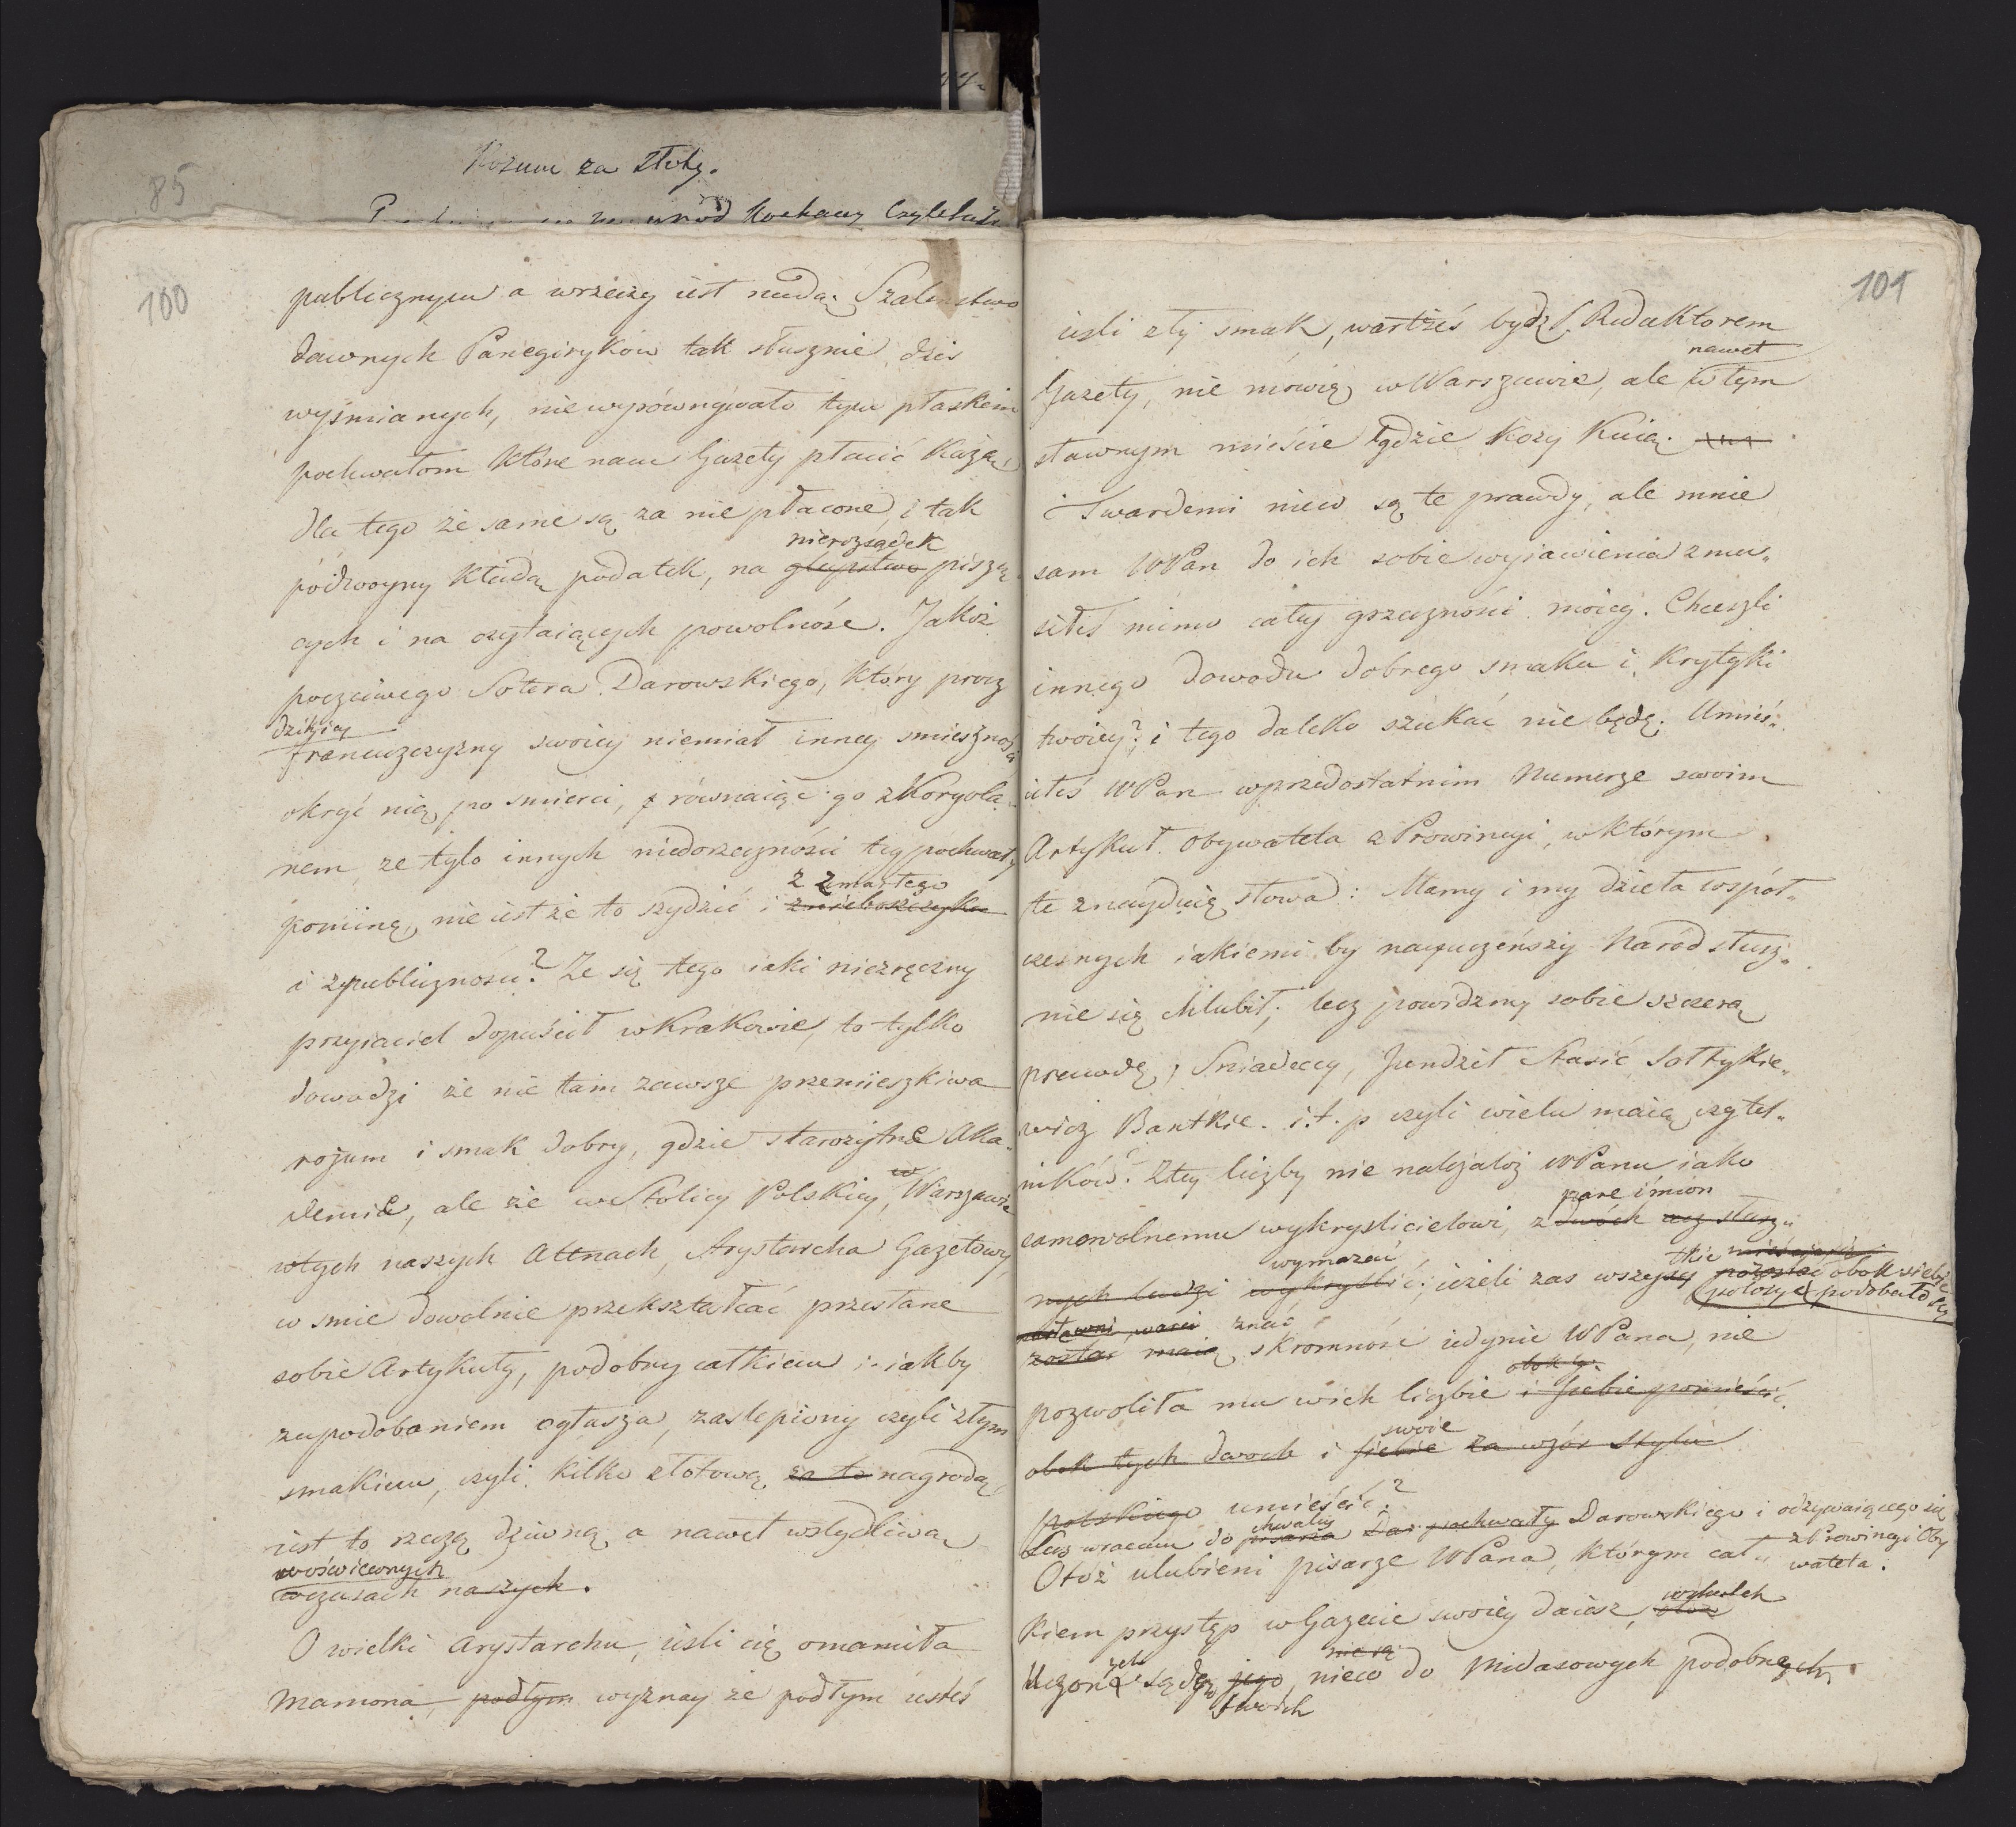 85
Rozum za Złoty.
kochany Czytelni
100
publicznym a wrzeczy iest nudą. Szaleństwo
dawnych Panegiryków tak słusznie dziś
wyśmianych, niewyrównywało tym płaskim
pochwałom które nam Gazety płacić każą,
dla tego że same są za nie płacone, i tak
nierozsądek
podwoyny kładą podatek, na głupstwo piszą
cych i na czytaiących powolność. Jakoż
poczciwego Sotera Darowskiego, który procz
dzikiey
francuzczyzny swoiey niemiał inney smiesznośći
okryć nią po smierci, równaiąc go z Koryola
nem, że tylo innych niedorzeczności tey pochwały
z zmarłego
pominę, nie iest że to szydzić i znieboszczyka
i zpubliczności? Ze się tego iaki niezręczny
przyiaciel dopuścił w Krakowie, to tylko
dowodzi że nie tam zawsze przemieszkiwa
rozum i smak dobry, gdzie starożytne Aka
demie, ale że w Stolicy Polskiey, w Warszawie
wtych naszych Atenach, Arystarcha Gazetowy,
w smie dowolnie przekształcać przesłane
sobie Artykuły, podobny całkiem iakby
zupodobaniem ogłasza, zaslepiony czyli złym
smakiem, czyli kilko złotową za to nagrodą,
iest to rzeczą dziwną a nawet wstydliwą
woświeconych
wczasach naszych.
O wielki Arystarchu, iesli cię omamiła
Mamona, podłym wyznay że podłym iesteś
101
iesli zły smak, wartżeś bydź Redaktorem
nawet
Gazety, nie mówię w Warszawie, ale w tym
sławnym mieście gdzie kozy kuią.
Twardemi nieco są te prawdy, ale mnie
sam WPan do ich sobie wyiawienia zmu„
siłeś mimo całey grzeczności moiey. Chceszli
innego dowodu dobrego smaku i Krytyki
twoiey? i tego daleko szukać nie będę. Umieś„
ciłeś WPan wprzedostatnim Numerze swoim
Artykuł Obywatela z Prowincyi, w którym
te znayduię słowa: Mamy i my dzieła wspól„
czesnych iakiemi by nayuczeńszy Naród słusz„
nie się chlubił; lecz powidzmy sobie szczerą
prawdę, Sniadeccy, Jundził Stasic Sołtykie„
wicz Bantkie. i.t.p czyli wielu maią czytel„
ników? Ztey liczby nie należałoż WPanu iako
pare imion
samowolnemu wykryslicielowi, z dwóch
wymazać
nych ludzi wykryślić; ieżeli zas wszys tkie obok siebie
położyć podobało się
zostać maią, znać skromność iedynie WPana, nie
pozwoliła mu wich liczbie i siebie pomieścić.
swoie
obok tych dwoch i siebie za wzór Stylu
polskiego umieścić?
Lecz wracam do chwalcy pisarza Darowskiego i odzywaiącego się
z Prowincyi Oby
watela.
Otóż ulubieni pisarze WPana, którym cał„
kiem przystęp wGazecie swoiey daiesz,
nieco do Midasowych podobnych.
twoich